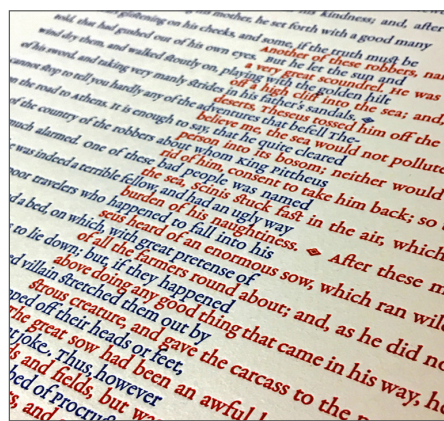 glistening on his cheeks, and some, if the truth must be
told, that had gushed out of his own eyes. But he let the sun and
wind dry them, and walked stoutly on, playing with the golden hilt
of his sword, and taking very manly strides in his father's sandals. ◈
cannot stop to tell you hardly any of the adventures that befell The-
on the road to Athens. It is enough to say, that he quite cleared
of the country of the robbers about whom King Pittheus
much alarmed. One of these bad people was named
was indeed a terrible fellow, and had an ugly way
poor travelers who happened to fall into his
a bed, on which, with great pretense of
to lie down; but, if they happened
villain stretched them out by
off their heads or feet,
joke. Thus, however
bed of
Another of these robbers,
a very great scoundrel. He was
off a high cliff into the sea; and,
deserts, Theseus tossed him off the
believe me, the sea would not pollute
person into its bosom; neither would
rid of him, consent to take him back; so
the sea, Scinis stuck fast in the air, which
burden of his naughtiness. ◈ After these
seus heard of an enormous sow, which ran
of all the farmers round about; and, as he did
above doing any good thing that came in his way, he
strous creature, and gave the carcass to the
The great sow had been an awful
and fields, but